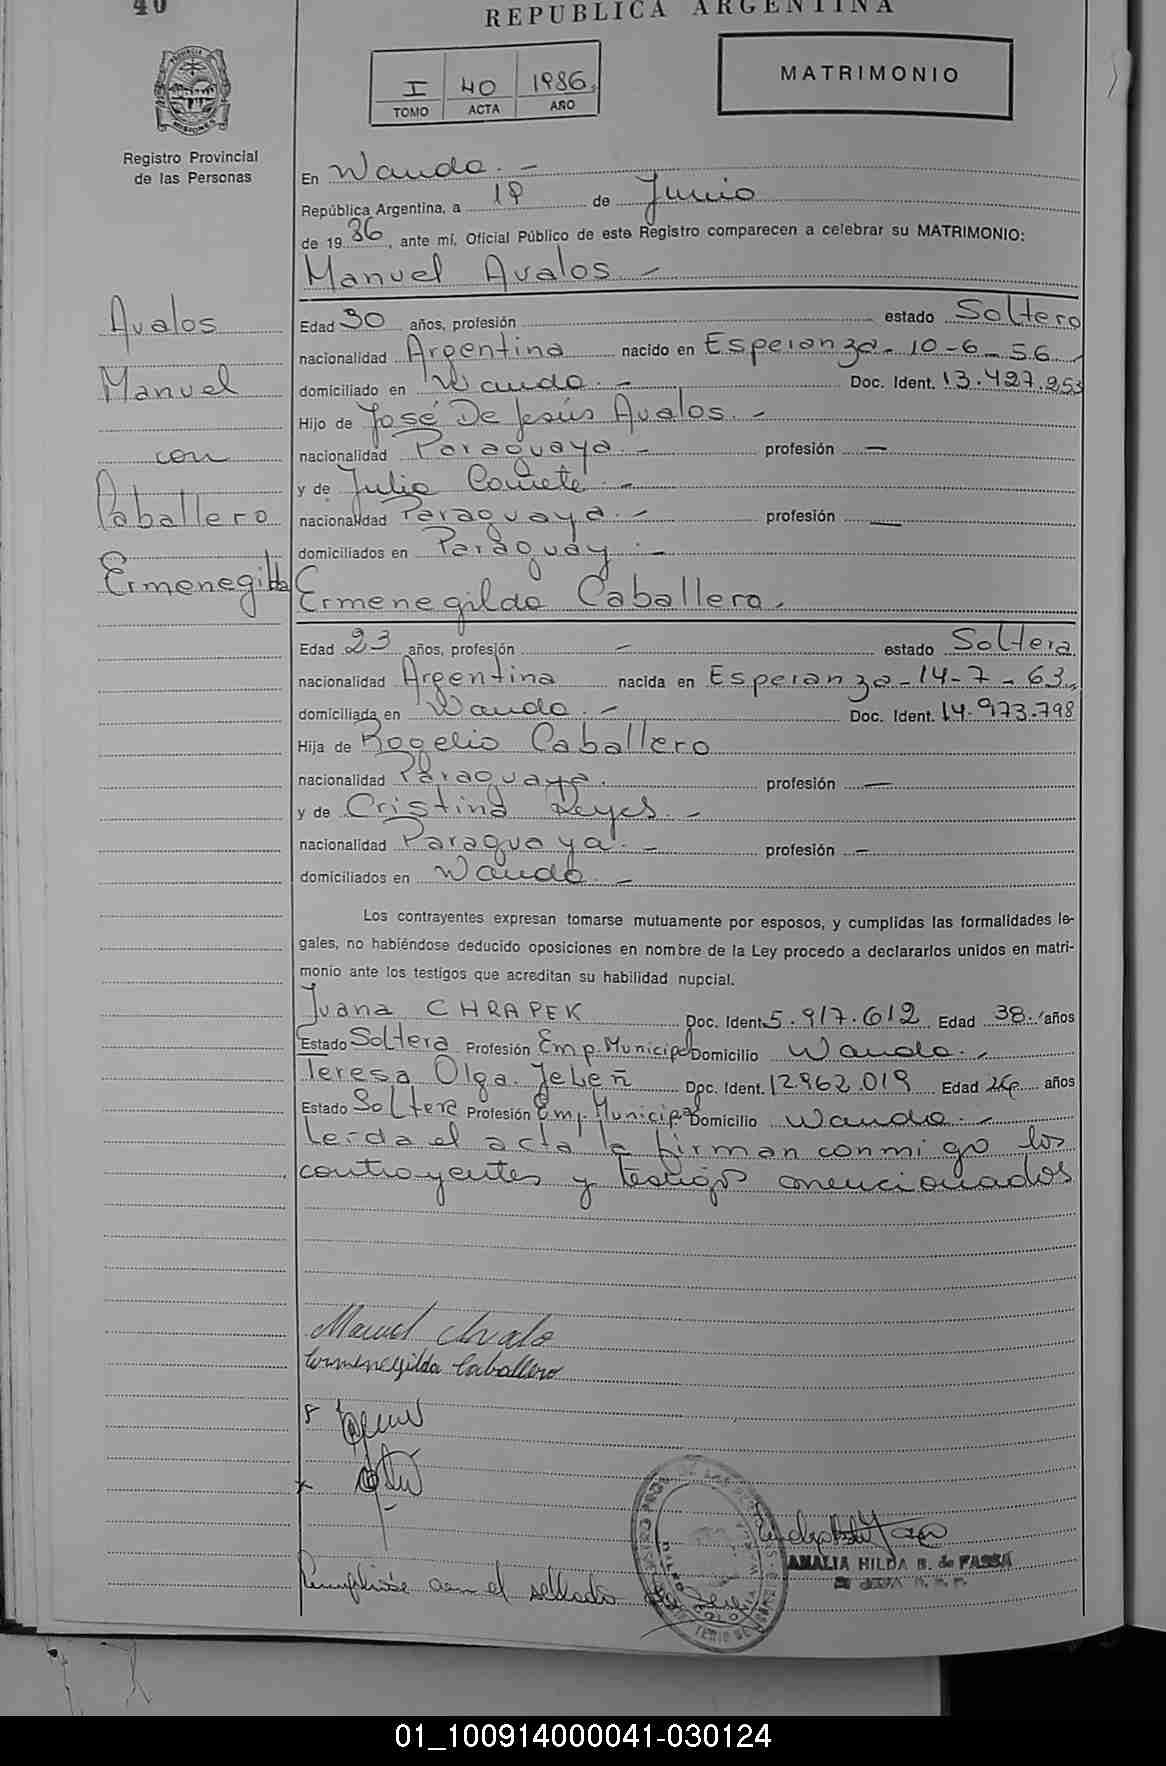 40
REPUBLICA ARGENTINA
I 40 1986
TOMO ACTA AÑO
MATRIMONIO
PROVINCIA
MISIONES
Registro Provincial
de las Personas
En Wanda.-
República Argentina, a 19 de Junio
de 1986, ante mí, Oficial Público de este Registro comparecen a celebrar su MATRIMONIO:
Manuel Avalos -
Avalos
Manuel
con
Caballero
Ermenegilda
Edad 30 años, profesión estado Soltero
nacionalidad Argentina nacido en Esperanza- 10-6-56
domiciliado en Wanda.- Doc. Ident. 13.427.253
Hijo de José De Jesús Avalos.-
nacionalidad Paraguaya.- profesión -
y de Julia Cañete.-
nacionalidad Paraguaya.- profesión -
domiciliados en Paraguay.-
Ermenegilda Caballero.
Edad 23 años, profesión - estado Soltera
nacionalidad Argentina nacida en Esperanza-14-7-63.
domiciliada en Wanda.- Doc. Ident. 14.973.798
Hija de Rogelio Caballero
nacionalidad Paraguaya. profesión -
y de Cristina Reyes.-
nacionalidad Paraguaya.- profesión -
domiciliados en Wanda.-
Los contrayentes expresan tomarse mutuamente por esposos, y cumplidas las formalidades le-
gales, no habiéndose deducido oposiciones en nombre de la Ley procedo a declararlos unidos en matri-
monio ante los testigos que acreditan su habilidad nupcial.
Juana CHRAPEK Doc. Ident. 5.917.612 Edad 38 años
Estado Soltera Profesión Emp. Municipal Domicilio Wanda.-
Teresa Olga Doc. Ident. 12962.019 Edad años
Estado Soltera Profesión Emp. Municipal Domicilio Wanda.-
Leida el acta la firman conmigo los
contrayentes y testigos mencionados
Manuel Avalo
Ermenegilda Caballero
AMALIA HILDA B. de FASSA
con el sellado
01_100914000041-030124